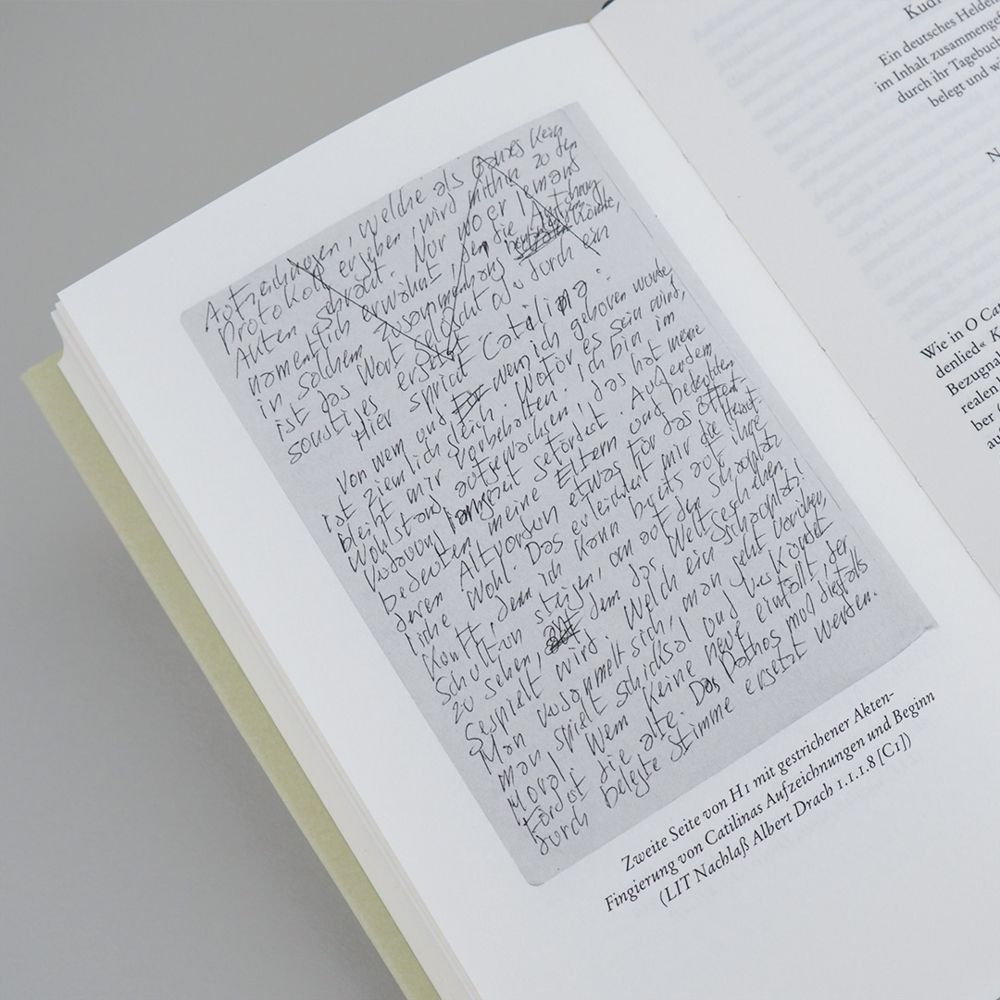 Aufzeichnungen, welche als Ganzes kein
Protokoll ergeben, wird mithin zu den
Akten schrdt. Nur wo er jemans
namentlich erwähnt, den die Ahndung
in solchem Zusammenhang könnte,
ist das Wort gelöscht o. durch ein
sonstiges ersetzt.
Hier spricht Catilina:
Von wem und wem ich geboren wurde,
ist ziemlich gleich. Wofür es sein wird,
bleibt mir vorbehalten. Ich bin im
Wohlstand aufgewachsen; das hat meine
langezeit gefördert. Außerdem
bedeuten meine Eltern und bedeuteten
deren Altvordern etwas für das öffent-
liche Wohl. Das erleichtert mir die
kunft, denn ich kann bereits auf ihre
Schultern steigen, um auf den Schauplatz
zu sehen, auf dem das Weltgeschehen
gespielt wird. Welch ein Schauplatz!
Man versammelt sich, man geht vorüber,
man spielt Schicksal und verkündet
Moral. Wem keine neue einfällt, der
fördist die alte. Das Pathos muß diesfalls
durch belegte Stimme ersetzt werden.
Zweite Seite von H1 mit gestrichener Akten-
Fingierung von Catilinas Aufzeichnungen und Beginn
(LIT Nachlaß Albert Drach 1.1.1.8 [C1])
Ein deutsches Helden
im Inhalt zusammengef
durch ihr Tagebuch
belegt und wi
N
Wie in O Cat
denlied« K
Bezugna
realen
ber